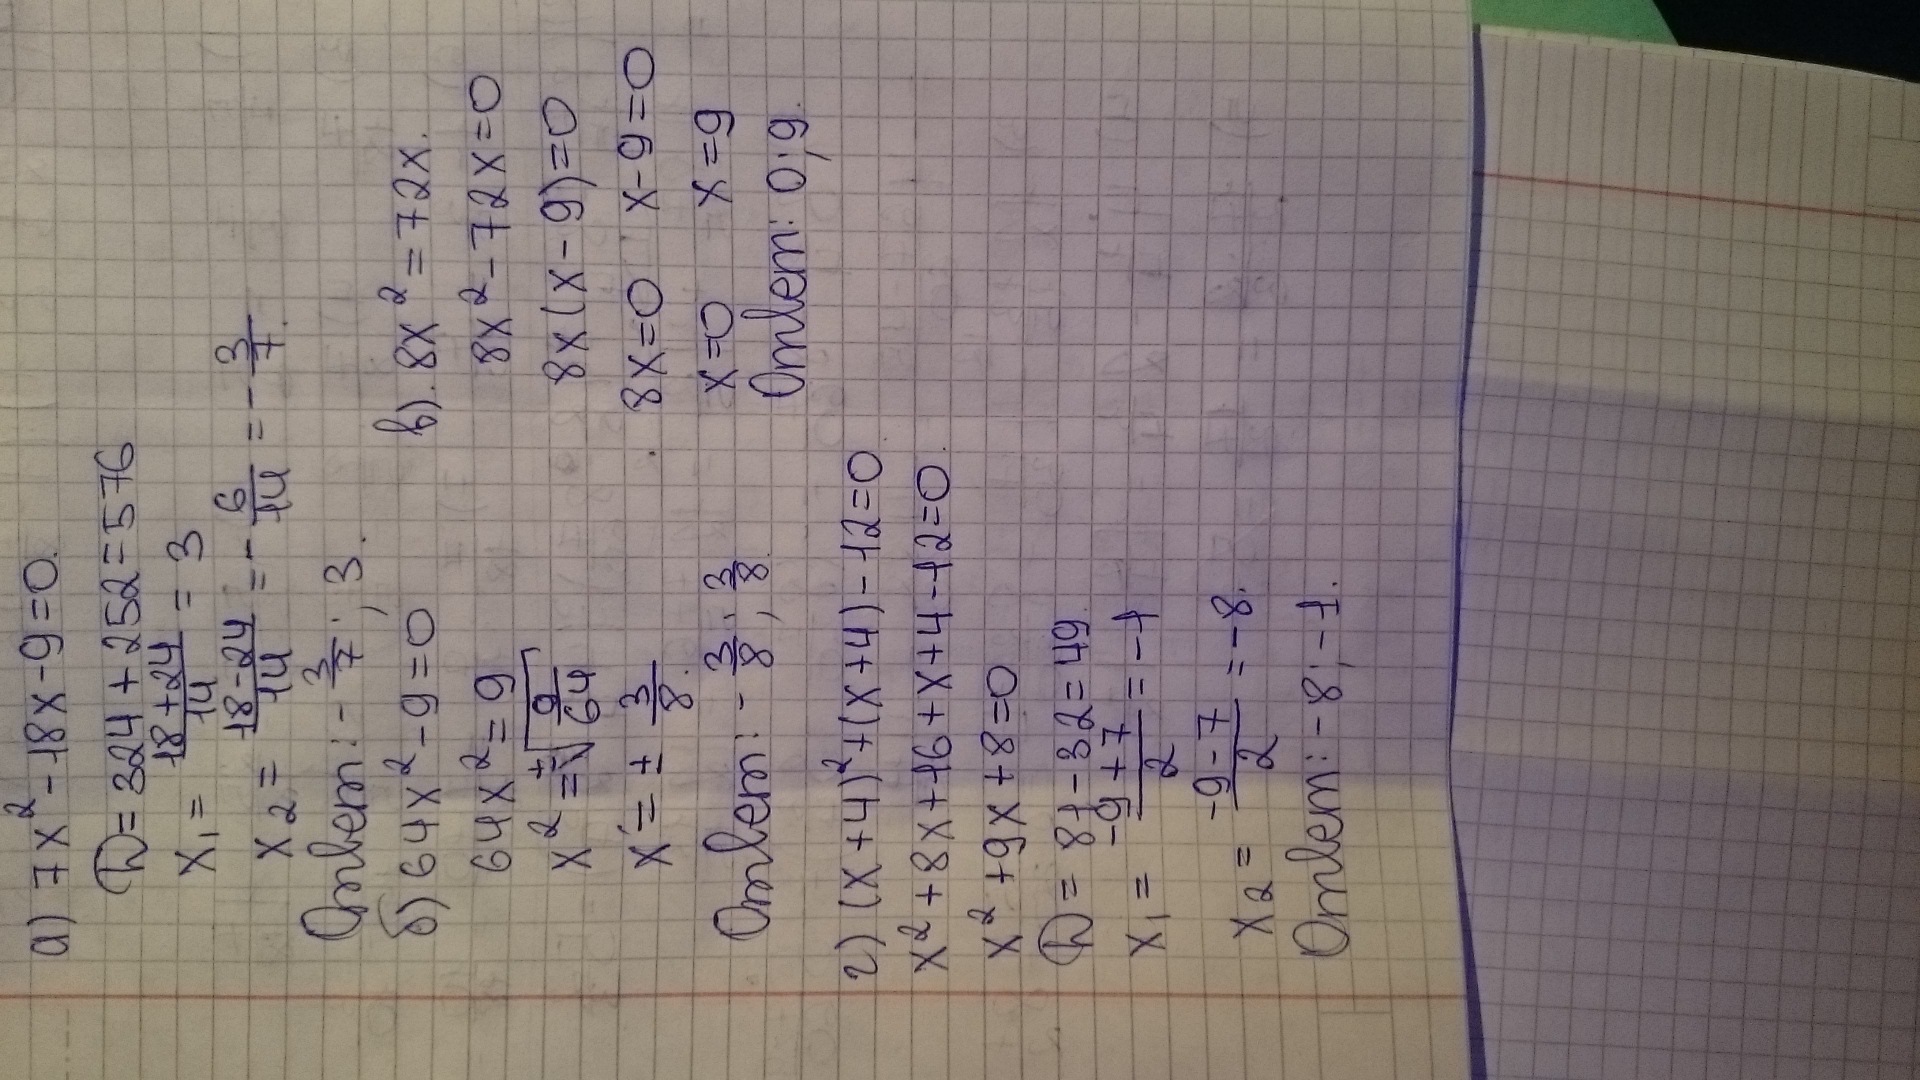 а) 7x² - 18x - 9 = 0.
D = 324 + 252 = 576
x₁ = (18+24)/14 = 3
x₂ = (18-24)/14 = -6/14 = -3/7.
Ответ: -3/7; 3.
б) 64x² - 9 = 0
64x² = 9
x² = ±√(9/64)
x = ± 3/8.
Ответ: -3/8; 3/8.
в). 8x² = 72x.
8x² - 72x = 0
8x(x - 9) = 0
8x = 0 x - 9 = 0
x = 0 x = 9
Ответ: 0; 9.
г) (x + 4)² + (x + 4) - 12 = 0.
x² + 8x + 16 + x + 4 - 12 = 0.
x² + 9x + 8 = 0
D = 81 - 32 = 49
x₁ = (-9 + 7)/2 = -1
x₂ = (-9 - 7)/2 = -8.
Ответ: -8; -1.